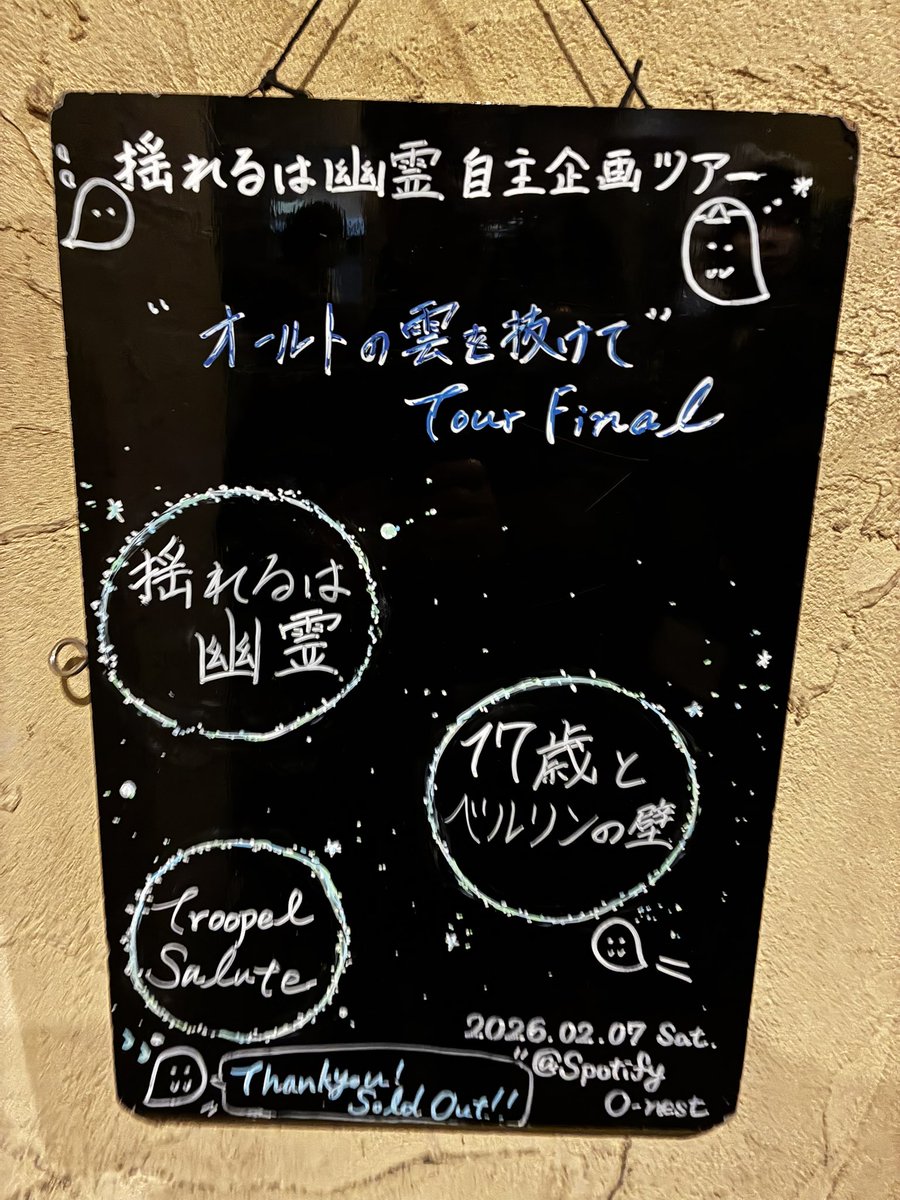 揺れるは幽霊 自主企画ツアー
"オールトの雲を抜けて"
Tour Final
揺れるは
幽霊
17歳と
ベルリンの壁
Troopel
Salute
2026.02.07 Sat.
@Spotify
O-nest
Thankyou!
Sold Out!!